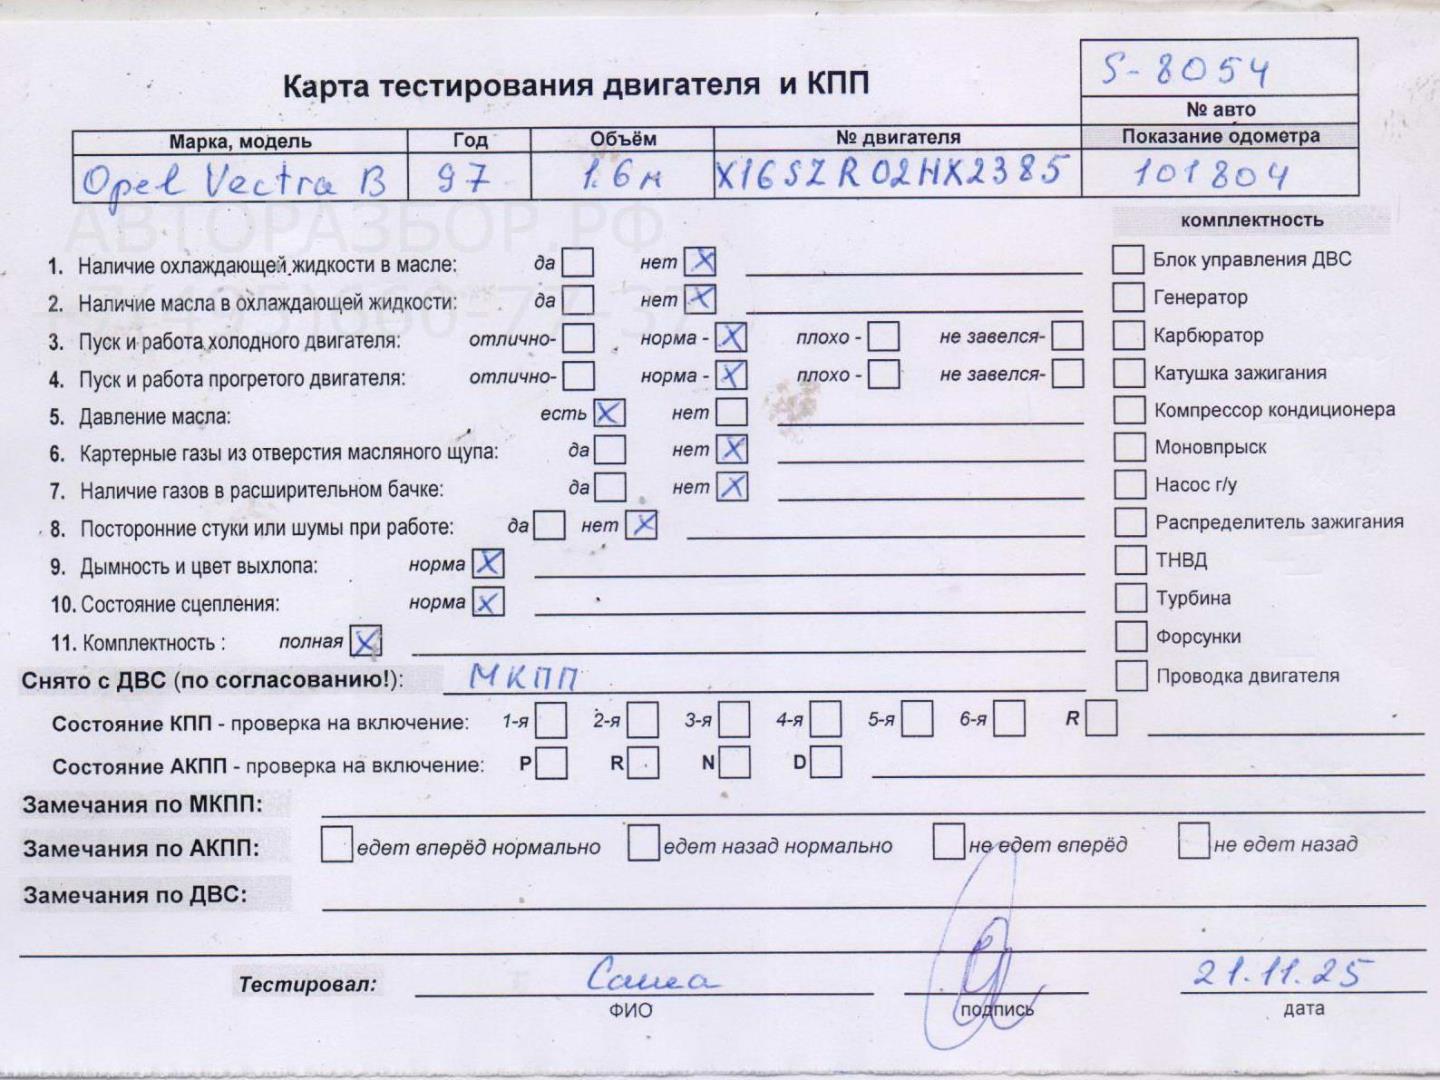 S-8054
Карта тестирования двигателя и КПП
№ авто
Марка, модель Год Объём № двигателя Показание одометра
Opel Vectra B 97 1.6м X16SZR02HX2385 101804
АВТОРАЗБОР.РФ
комплектность
1. Наличие охлаждающей жидкости в масле: да нет X Блок управления ДВС
2. Наличие масла в охлаждающей жидкости: да нет X Генератор
3. Пуск и работа холодного двигателя: отлично- норма - X плохо - не завелся- Карбюратор
4. Пуск и работа прогретого двигателя: отлично- норма - X плохо - не завелся- Катушка зажигания
5. Давление масла: есть X нет Компрессор кондиционера
6. Картерные газы из отверстия масляного щупа: да нет X Моновпрыск
7. Наличие газов в расширительном бачке: да нет X Насос г/у
8. Посторонние стуки или шумы при работе: да нет X Распределитель зажигания
9. Дымность и цвет выхлопа: норма X ТНВД
10. Состояние сцепления: норма X Турбина
11. Комплектность : полная X Форсунки
Снято с ДВС (по согласованию!): МКПП Проводка двигателя
Состояние КПП - проверка на включение: 1-я 2-я 3-я 4-я 5-я 6-я R
Состояние АКПП - проверка на включение: P R N D
Замечания по МКПП:
Замечания по АКПП: едет вперёд нормально едет назад нормально не едет вперёд не едет назад
Замечания по ДВС:
Тестировал: Саша 21.11.25
ФИО подпись дата